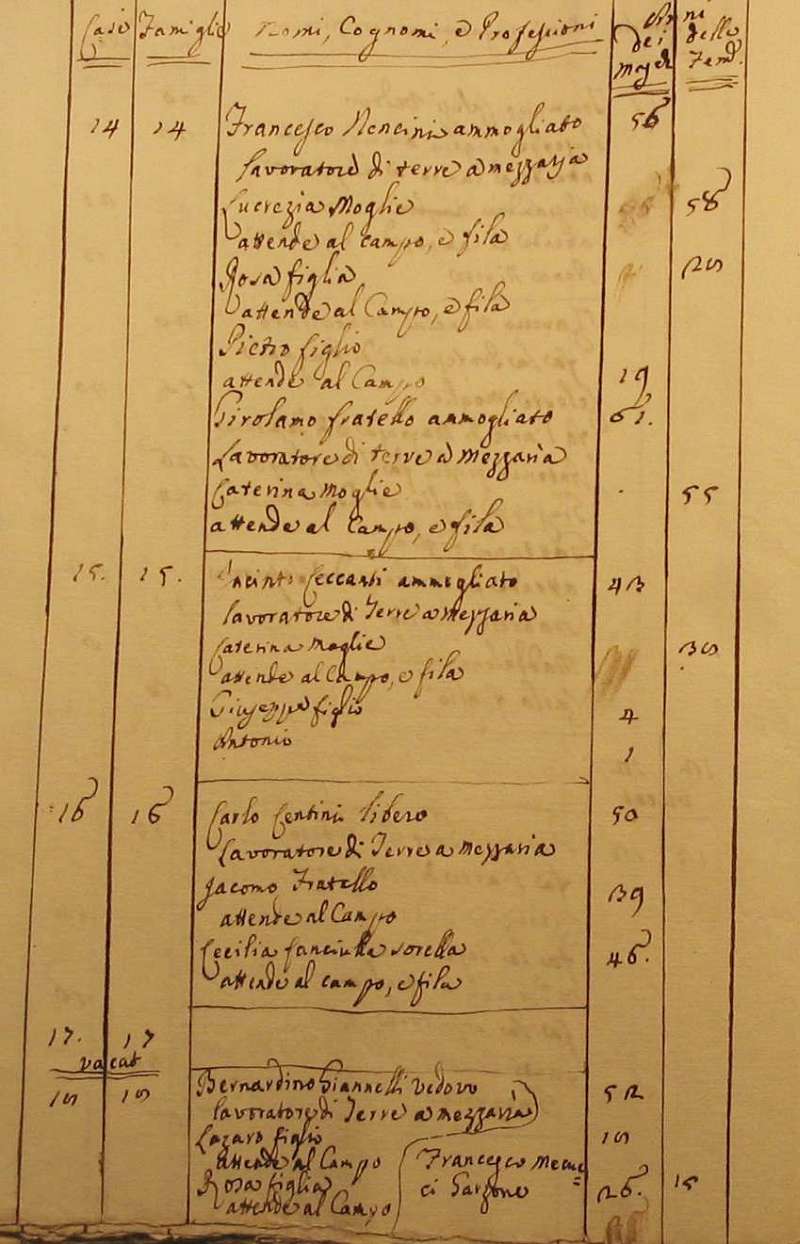 Case Famiglie Nomi, Cognomi, e Professioni Anni dei Masch. delle Fem.
14 14 Francesco Nencini ammogliato 56
lavoratore di terre a mezzaria
Lucrezia Moglie 58
attende al campo, e fila
Rosa figlia
attende al Campo, e fila
Pietro figlio
attende al Campo 19
Girolamo fratello ammogliato 61.
Lavoratore di terre a Mezzaria
Caterina Moglie 55
attende al Campo, e fila
15. 15. Ceccanti ammogliato 43
lavoratore di Terre a Mezzaria
Caterina Moglie
attende al Campo, e fila
Giuseppe figlio 4
Antonio 1
16 16 Carlo Centini libero 50
Lavoratore di Terre a mezzaria
Jacomo Fratello 39
attende al Campo
Cecilia fanciulla sorella 46.
attende al campo, e fila
17. 17
vacat
Bernardino Giannelli Vedovo 52
lavoratore di Terre a mezzaria
Lazaro figlio
attende al Campo Francesco Mecuc=
Rosa figlia ci Garzone 26. 15
attende al Campo